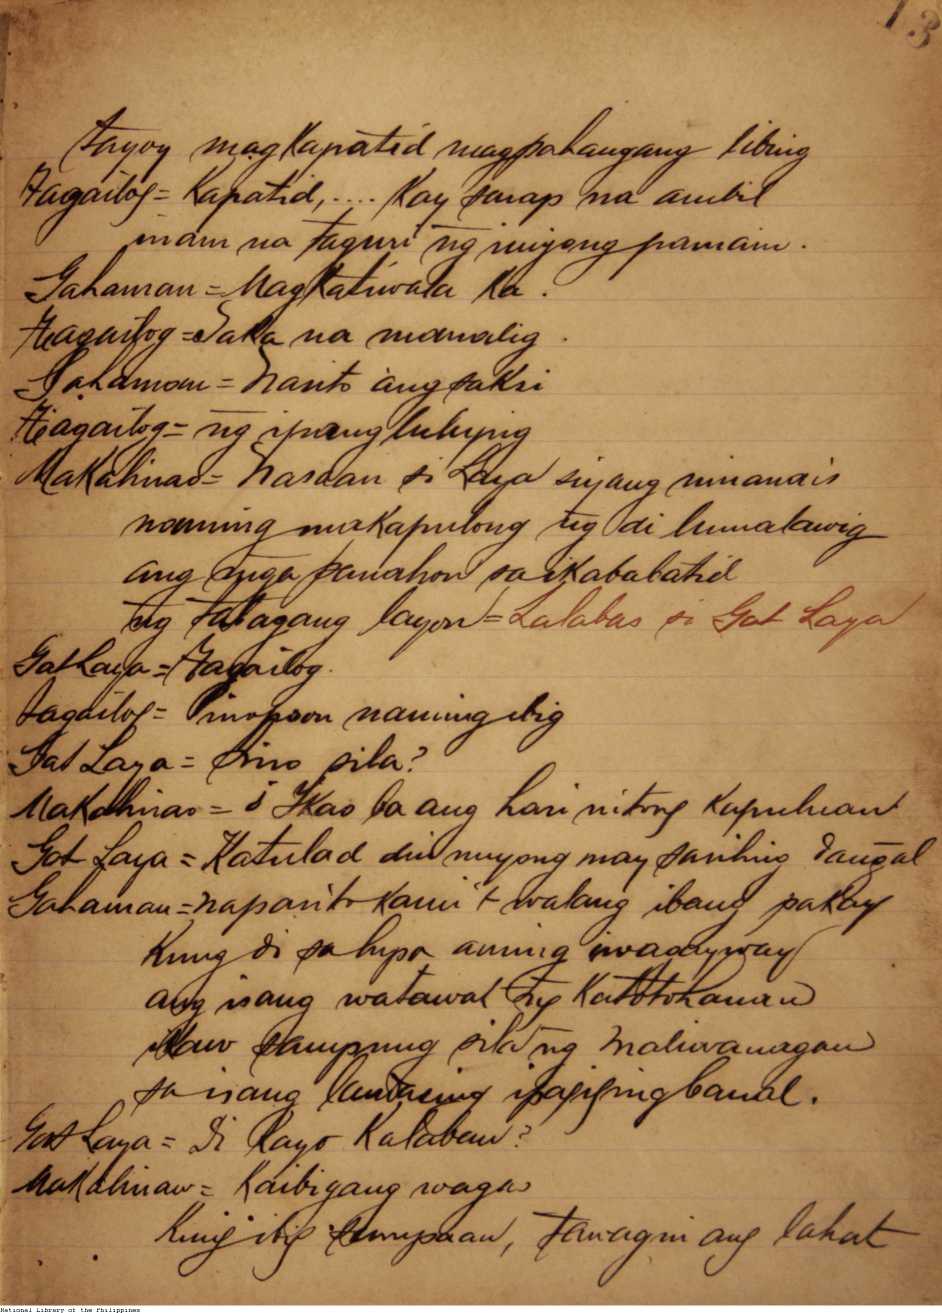 13
tayoy magkapatid magpahangang libing
Tagailog = Kapatid, .... Kay sarap na ambil
inam na taguri ng iniyong pamain.
Gahaman = Magkatiwala Ka.
Tagailog = Saka na manalig.
Gahaman = Narito ang saksi
Tagailog = ng ipang lulupig
Makahinao = Nasaan si Laya siyang ninanais
naming makapulong ng di lumalawig
ang mga panahon sa ikababatid
ng talagang layon = Lalabas si Gat Laya
Gat Laya = Tagailog.
Tagailog = Pinopoon naming ibig
Gat Laya = Sino sila?
Makahinao = i Ikao ba ang hari nitong Kapuluan
Gat Laya = Katulad din nuyong may sariling dangal
Gahaman = naparito kami't walang ibang pakay
Kung di sa lupa aming iwagayway
ang isang watawat ng Katotohanan
ikaw sampung sila ng maliwanagan
sa isang lantaing ipagiging banal.
Gat Laya = Di kayo Kalaban?
Makahinaw = Kaibigang wagas
Kung ibig sumpaan, tawagin ang lahat
National Library of the Philippines